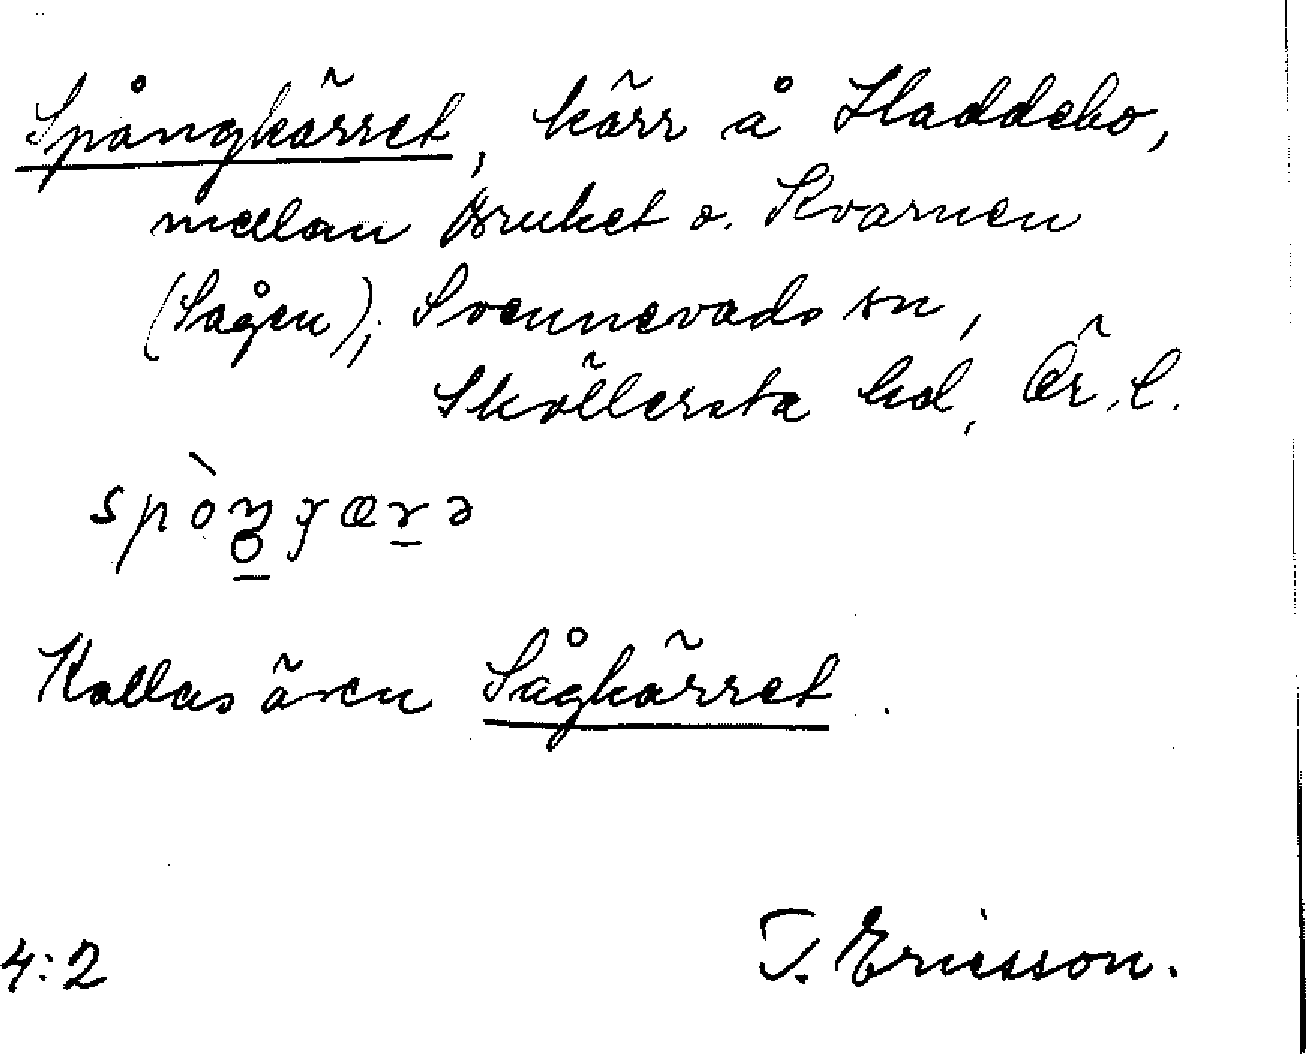 Spångkärret, kärr å Haddebo,
mellan Bruket o. Kvarnen
(Sågen); Svennevads sn,
Sköllersta hd, Ör. l.
Kallas även Sågkärret.
4:2 T. Ericsson.